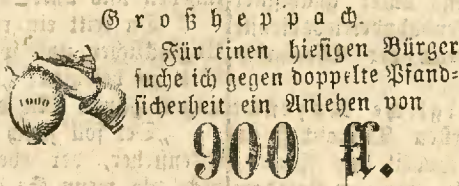 Großheppach.
Für einen hiesigen Bürger
suche ich gegen doppelte Pfand=
sicherheit ein Anlehen von
1000
900 fl.